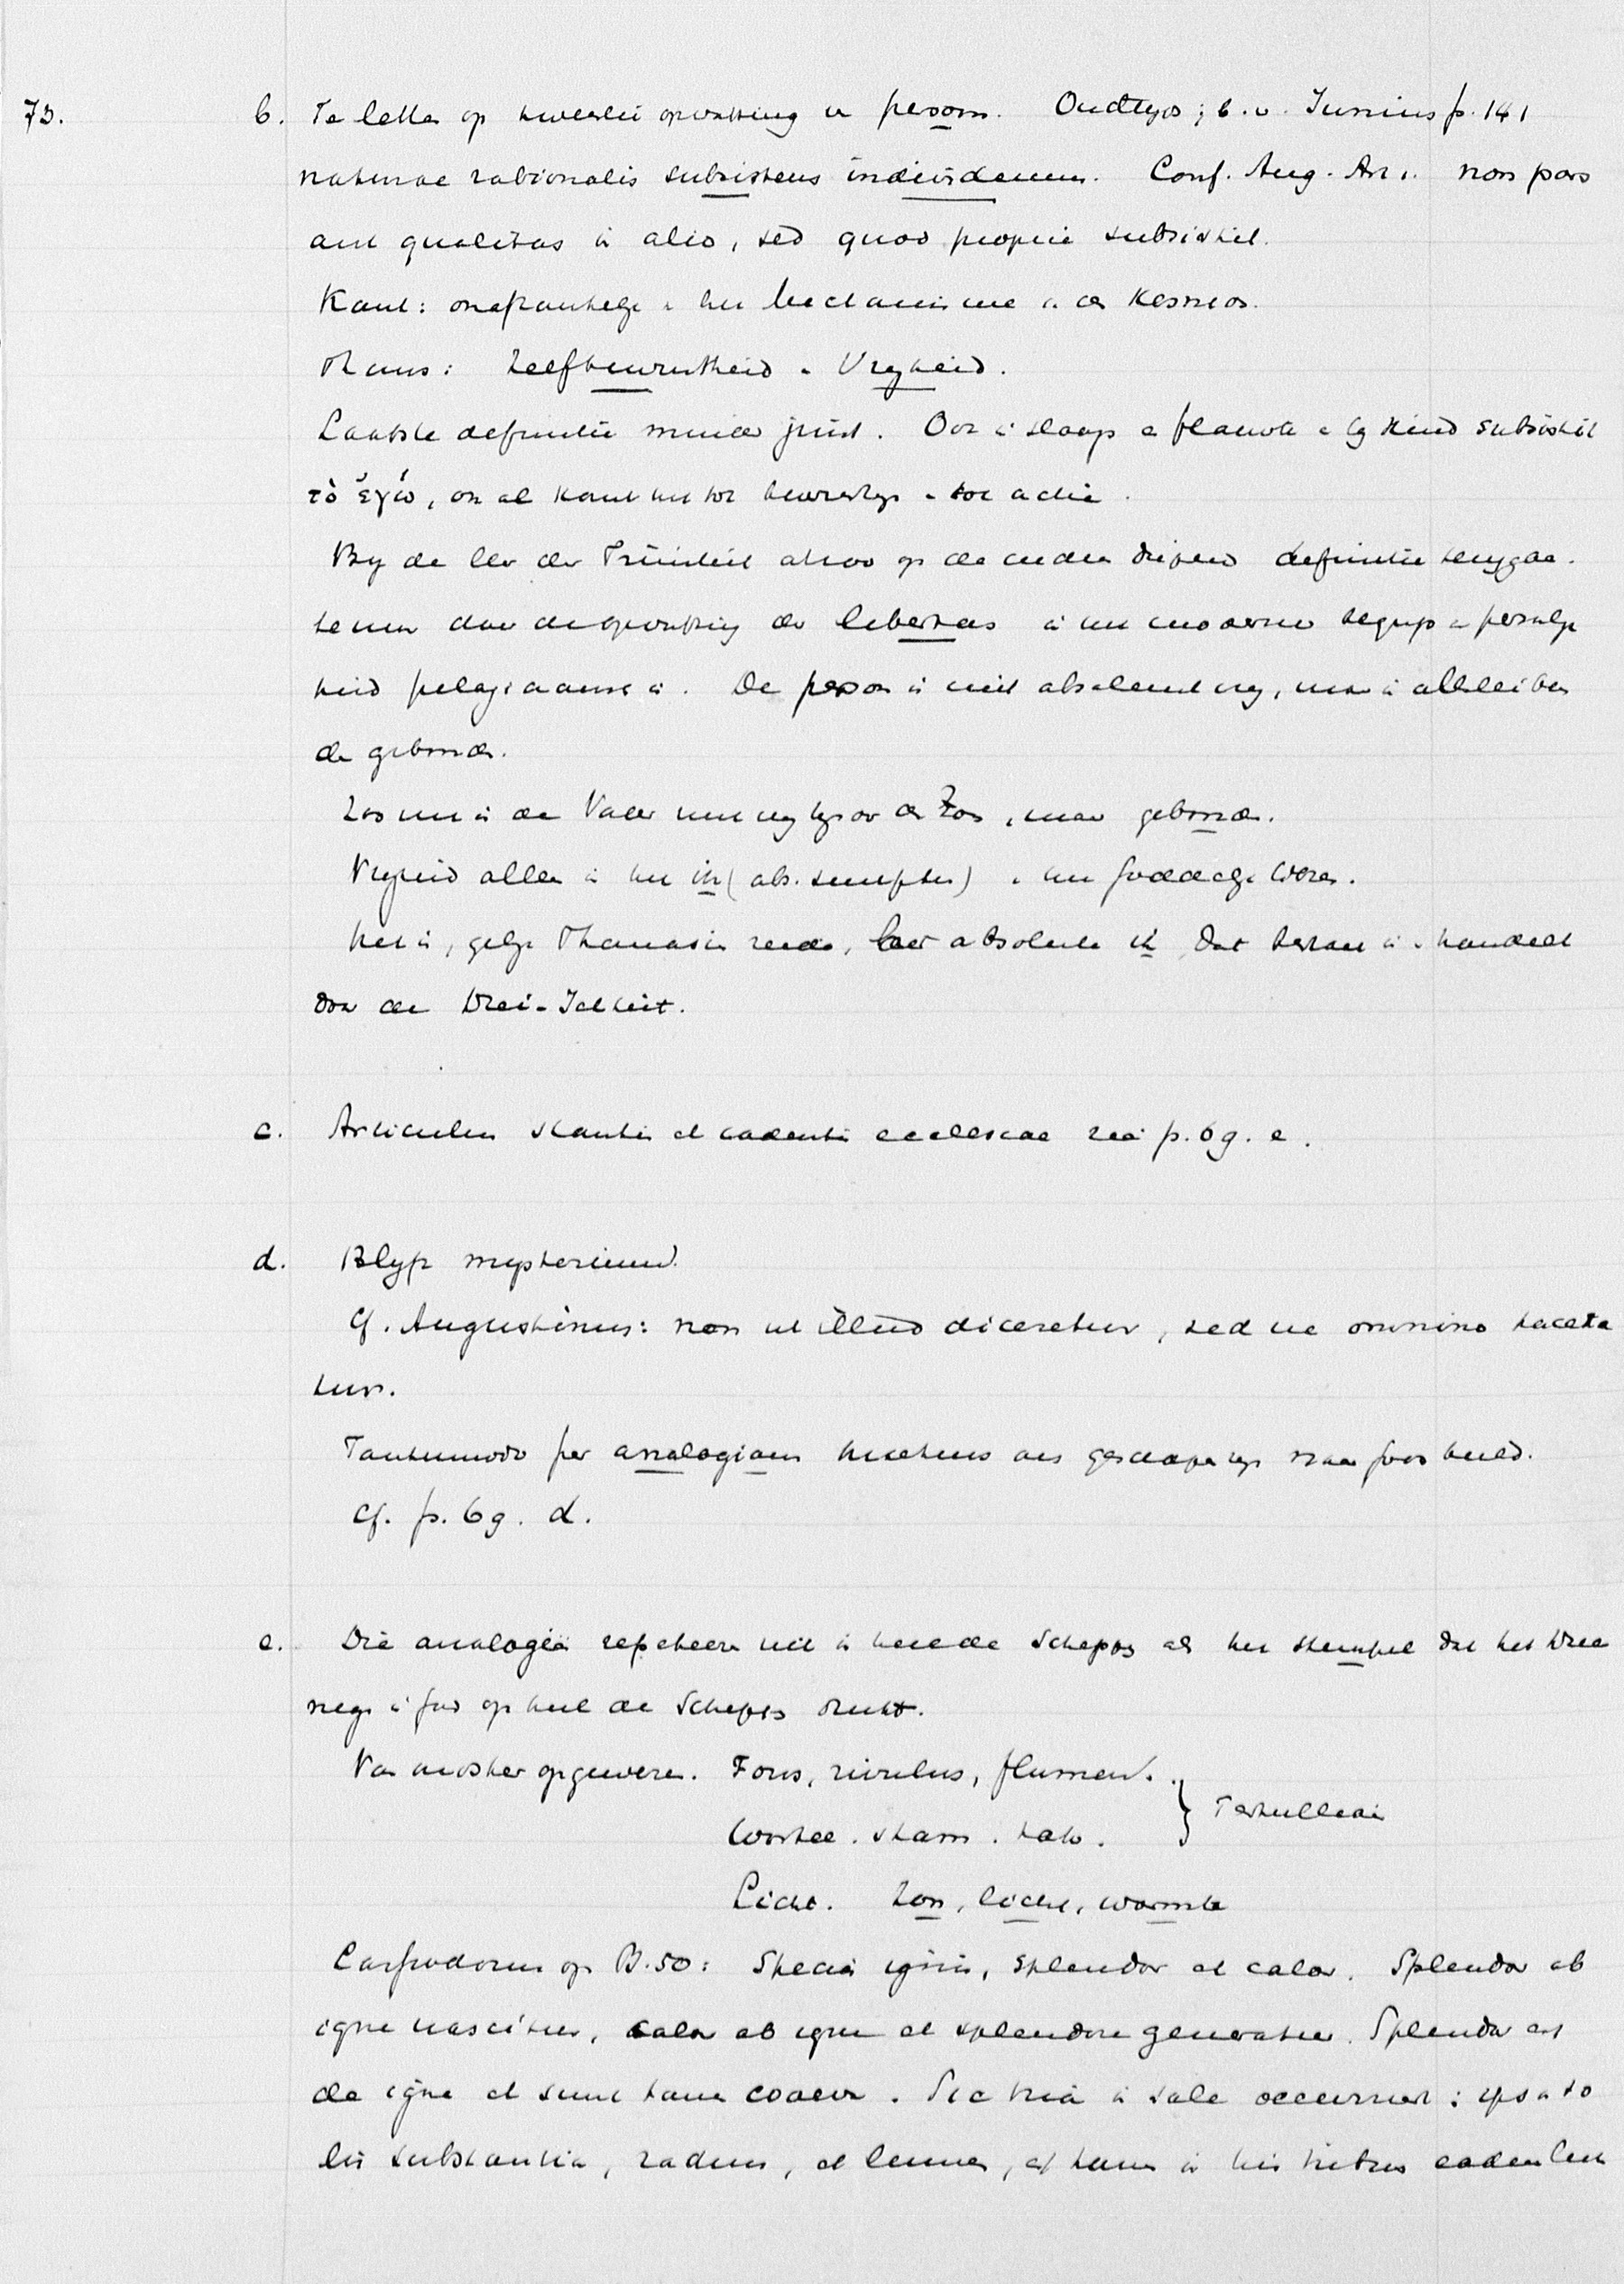 73. b. Te letten op tweeërlei opvatting v persoon. Oudtijds; b.v. Junius p. 141
naturae rationalis subsistens individuum. Conf. Aug. Art 1. non pars
aut qualitas in alio, sed quod proprie subsistit.
Kant: onafhankelijk v het Mechanisme v de Kosmos.
Thans: Zelfbewustheid en Vrijheid.
Laatste definitie minder juist. Ook in slaap en flauwte en bij kind subsistit
τὸ ἐγώ, ook al komt het tot bewustzijn tot actie.
Bij de leer der Triniteit alzoo op de oudere definitie teruggaan.
te meer daar de opvatting der libertas in het moderne begrip v persoonlijk
heid pelagiaansch is. De persoon is niet absoluut vrij, maar in allerlei ban
de gebonden.
Zoo nu is de Vader niet vrij tegenover de Zoon, maar gebonden.
Vrijheid alleen in het ik (abs. sumptum) v het Goddelijk Wezen.
Het is, gelijk Thomasius zeide, het absolute ik dat bestaat in en handelt
door de Drei-Ichheit.
c. Articulus stantis et cadentis ecclesiae zie p. 69. e.
d. Blijft mysterium.
Cf. Augustinus: non ut illud diceretur, sed ne omnino tacere
tur.
Tantummodo per analogiam hebben als geschapen zijnde naar Gods beeld.
Cf. p. 69. d.
e. Die analogie reflecteert niet in heel de Schepping als het stempel dat het Drie
eenig in God op heel de Schepping drukt.
Van ouds her opgewezen. Fons, rivulus, flumen. } Tertulliaan
Wortel. stam. tak.
Licht. Zon, licht, warmte
Cassiodorus op Ps. 50: Species ignis, splendor et calor. Splendor ab
igne nascitur, calor ab igne et splendore generatur. Splendor est
de igne et sunt tamen coaevi. Sic tria in sole occurrunt: ipsa so
lis substantia, radius, et lumen, et tamen in his tribus eadem lux